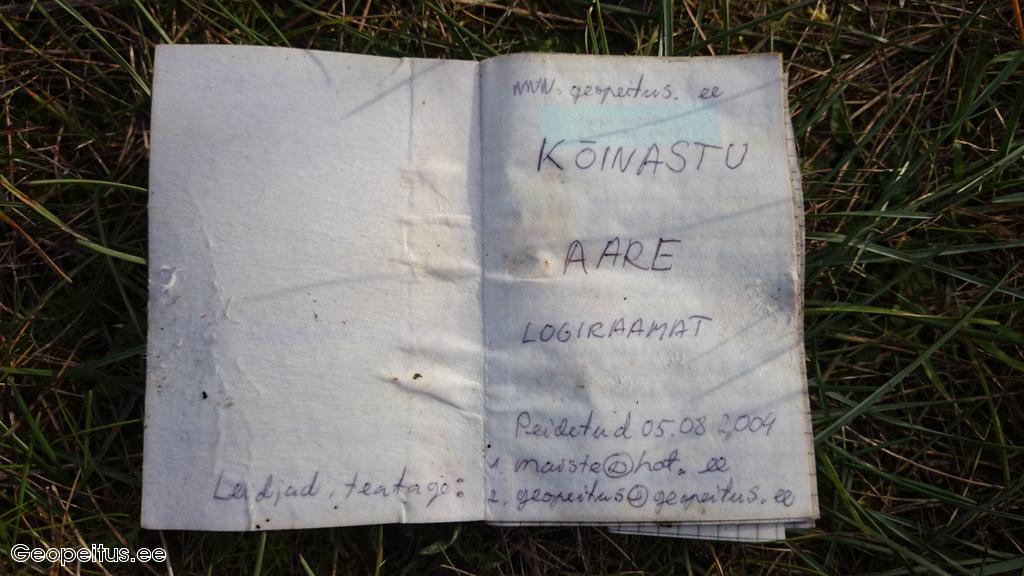 www.geopeitus.ee
KÕINASTU
AARE
LOGIRAAMAT
Peidetud 05.08 2004
1. maiste@hot.ee
Leidjad, teatage: 2. geopeitus@geopeitus.ee
Geopeitus.ee